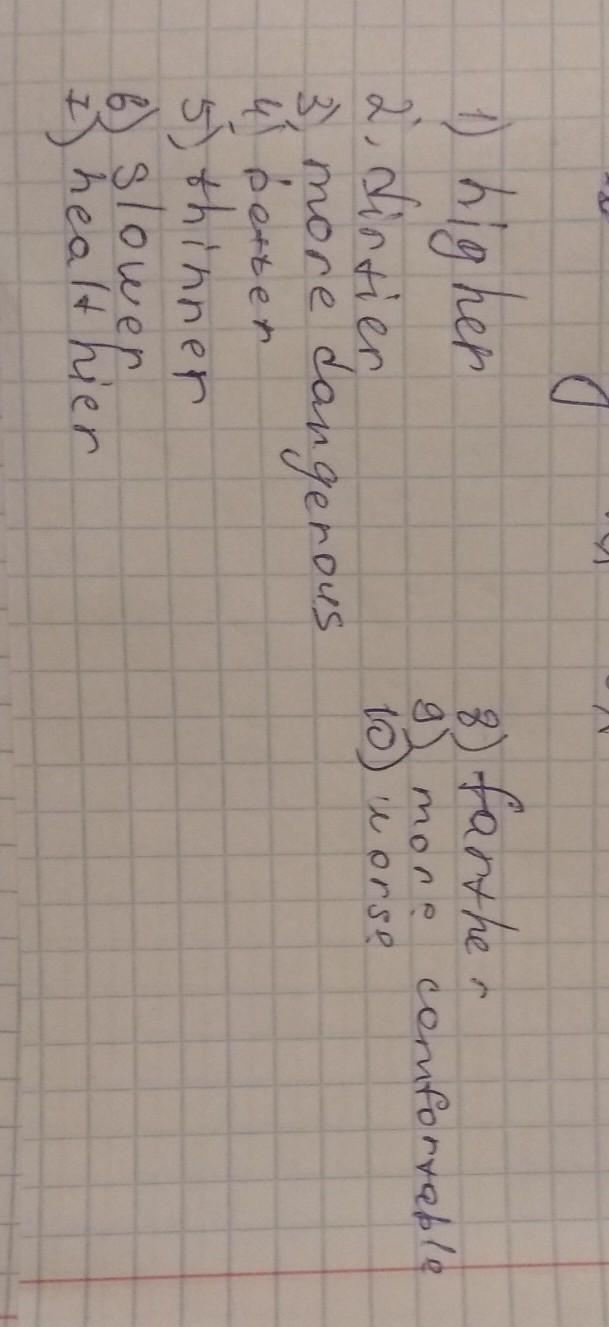 1) higher
2. dirtier
3) more dangerous
4) better
5) thinner
6) slower
7) healthier
8) farther
9) more comfortable
10) worse